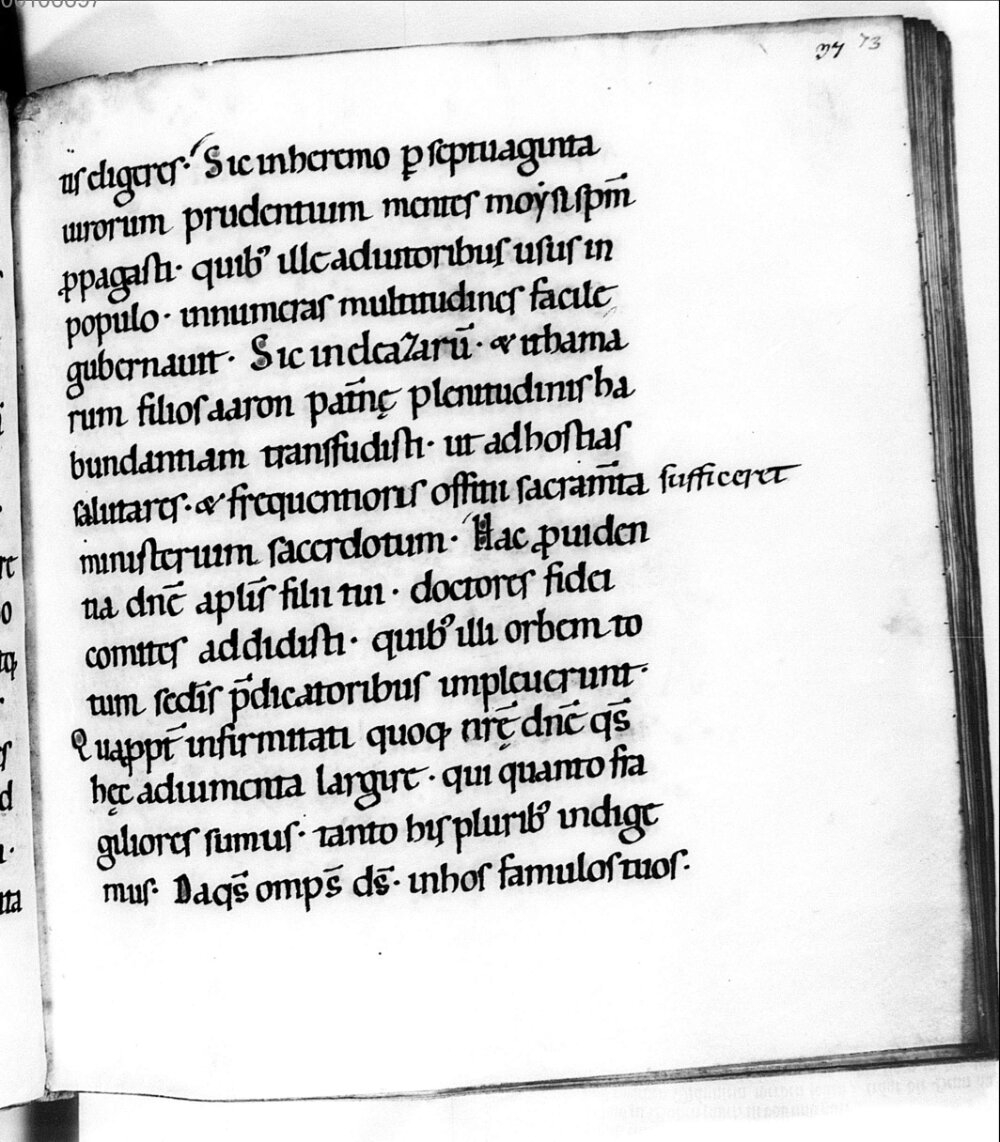 37 73
tis eligeres· Sic inheremo ꝑ septuaginta
uirorum prudentium mentes moẏsi sp̅m
ꝓpagasti· quib⁹ ille adiutoribus usus in
populo· innumeras multitudines facile
gubernauit· Sic in eleazarū· & ithama
rum filios aaron pat̅nę plenitudinis ha
bundantiam transfudisti· ut ad hostias
salutares· & frequentioris offitii sacram̅ta sufficeret
ministerium sacerdotum· Hac ꝓuiden
tia dn̅e apl̅is filii tui· doctores fidei
comites addidisti· quib⁹ illi orbem to
tum sed̅is p̅dicatoribus impleuerunt·
Quappt̅ infirmitati quoqꝫ nr̅ę dn̅e qs̅
hęc adiumenta largire· qui quanto fra
giliores sumus· tanto his plurib⁹ indige
mus· Da qs̅ omps̅ ds̅· in hos famulos tuos·